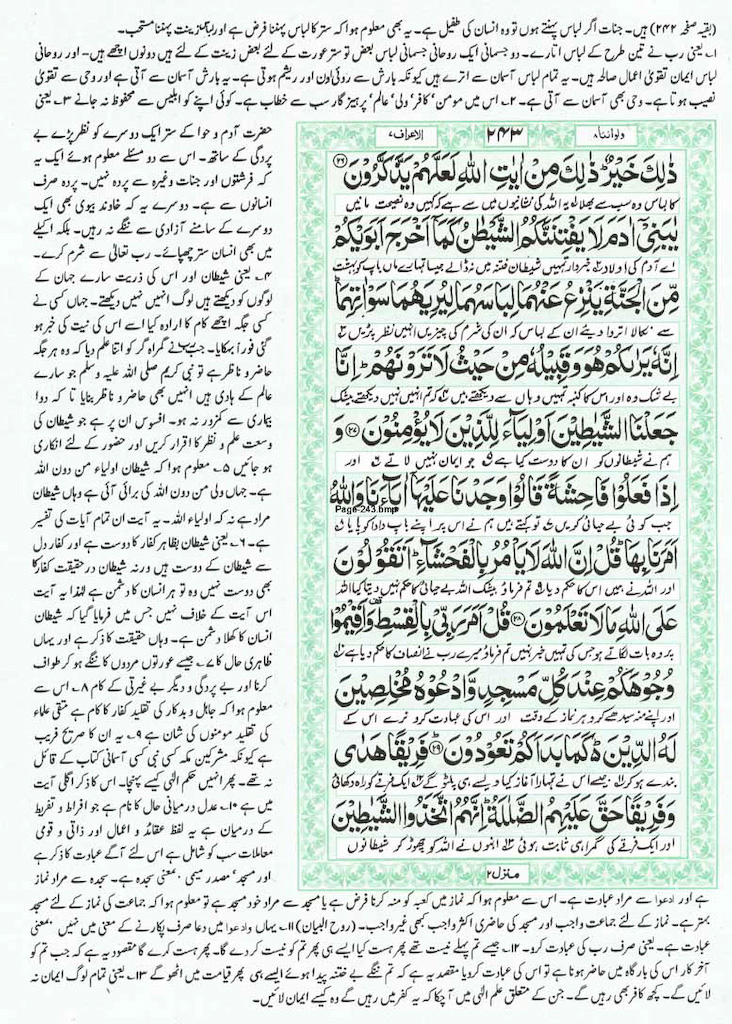 (بقیہ صفحہ ۲۴۲) ہیں۔ جنات اگر لباس پہنتے ہوں تو وہ انسان کی طفیل ہے۔ یہ بھی معلوم ہوا کہ ستر کا لباس پہننا فرض ہے اور لباس زینت پہننا مستحب۔
۱۔ یعنی رب نے تین طرح کے لباس اتارے۔ دو جسمانی ایک روحانی جسمانی لباس بعض تو ستر عورت کے لئے بعض زینت کے لئے ہیں دونوں اچھے ہیں۔ اور روحانی
لباس ایمان تقویٰ اعمال صالحہ ہیں۔ یہ تمام لباس آسمان سے اترے ہیں کیونکہ بارش سے روئی اون اور ریشم ہوتی ہے۔ یہ بارش آسمان سے آتی ہے اور وحی سے تقویٰ
نصیب ہوتا ہے۔ وحی بھی آسمان سے آتی ہے۔ ۲۔ اس میں مومن‘ کافر‘ ولی‘ عالم‘ پرہیز گار سب سے خطاب ہے۔ کوئی اپنے کو ابلیس سے محفوظ نہ جانے ۳۔ یعنی
حضرت آدم و حوا کے ستر ایک دوسرے کو نظر پڑے بے
پردگی کے ساتھ۔ اس سے دو مسئلے معلوم ہوئے ایک یہ
کہ فرشتوں اور جنات وغیرہ سے پردہ نہیں۔ پردہ صرف
انسانوں سے ہے۔ دوسرے یہ کہ خاوند بیوی بھی ایک
دوسرے کے سامنے آزادی سے ننگے نہ رہیں۔ بلکہ اکیلے
میں بھی انسان ستر چھپائے۔ رب تعالیٰ سے شرم کرے۔
۴۔ یعنی شیطان اور اس کی ذریت سارے جہان کے
لوگوں کو دیکھتے ہیں لوگ انہیں نہیں دیکھتے۔ جہاں کسی نے
کسی جگہ اچھے کام کا ارادہ کیا اسے اس کی نیت کی خبر ہو
گئی فوراً بہکایا۔ جب رب نے گمراہ گر کو اتنا علم دیا کہ وہ ہر جگہ
حاضر و ناظر ہے تو نبی کریم صلی اللہ علیہ وسلم جو سارے
عالم کے ہادی ہیں انہیں بھی حاضر و ناظر بنایا تا کہ دوا
بیماری سے کمزور نہ ہو۔ افسوس ان پر ہے جو شیطان کی
وسعت علم و نظر کا اقرار کریں اور حضور کے لئے انکاری
ہو جائیں ۵۔ معلوم ہوا کہ شیطان اولیاء من دون اللہ
ہے۔ جہاں ولی من دون اللہ کی برائی آئی ہے وہاں شیطان
مراد ہے نہ کہ اولیاء اللہ۔ یہ آیت ان تمام آیات کی تفسیر
ہے۔ ۶۔ یعنی شیطان بظاہر کفار کا دوست ہے اور کفار دل
سے شیطان کے دوست ہیں ورنہ شیطان در حقیقت کفار کا
بھی دوست نہیں وہ تو ہر انسان کا دشمن ہے لہٰذا یہ آیت
اس آیت کے خلاف نہیں جس میں فرمایا گیا کہ شیطان
انسان کا کھلا دشمن ہے۔ وہاں حقیقت کا ذکر ہے اور یہاں
ظاہری حال کا ۷۔ جیسے عورتوں مردوں کا ننگے ہو کر طواف
کرنا اور بے پردگی و دیگر بے غیرتی کے کام ۸۔ اس سے
معلوم ہوا کہ جاہل و بدکار کی تقلید کفار کا کام ہے متقی علماء
کی تقلید مومنوں کی شان ہے ۹۔ یہ ان کا صریح فریب
ہے کیونکہ مشرکین مکہ کسی نبی کسی آسمانی کتاب کے قائل
نہ تھے۔ پھر انہیں حکم الٰہی کیسے پہنچا۔ اس کا ذکر اگلی آیت
میں ہے ۱۰۔ عدل درمیانی حال کا نام ہے جو افراط و تفریط
کے درمیان ہے یہ لفظ عقائد و اعمال اور ذاتی و قومی
معاملات سب کو شامل ہے اس لئے آگے عبادت کا ذکر ہے
اور مسجد‘ مصدر میمی۔ بمعنی سجدہ ہے۔ سجدہ سے مراد نماز
ولواننا۸
۲۴۳
الاعراف۷
ذٰلِكَ خَيْرٌ ذٰلِكَ مِنْ اٰيٰتِ اللّٰهِ لَعَلَّهُمْ يَذَّكَّرُوْنَ ﴿۲۶﴾
کا لباس وہ سب سے بھلا لہ یہ اللہ کی نشانیوں میں سے ہے کہ کہیں وہ نصیحت مانیں
يٰبَنِيْٓ اٰدَمَ لَا يَفْتِنَنَّكُمُ الشَّيْطٰنُ كَمَآ اَخْرَجَ اَبَوَيْكُمْ
اے آدم کی اولاد ۲ خبردار تمہیں شیطان فتنہ میں نہ ڈالے جیسا تمہارے ماں باپ کو بہشت
مِّنَ الْجَنَّةِ يَنْزِعُ عَنْهُمَا لِبَاسَهُمَا لِيُرِيَهُمَا سَوْاٰتِهِمَا
سے نکالا اتروا دیئے ان کے لباس کہ ان کی شرم کی چیزیں انہیں نظر پڑیں ۳
اِنَّهٗ يَرٰىكُمْ هُوَ وَقَبِيْلُهٗ مِنْ حَيْثُ لَا تَرَوْنَهُمْ اِنَّا
بے شک وہ اور اس کا کنبہ تمہیں وہاں سے دیکھتے ہیں کہ تم انہیں نہیں دیکھتے ۴ بیشک
جَعَلْنَا الشَّيٰطِيْنَ اَوْلِيَآءَ لِلَّذِيْنَ لَا يُؤْمِنُوْنَ ﴿۲۷﴾ وَ
ہم نے شیطانوں کو ان کا دوست کیا ہے ۵ جو ایمان نہیں لاتے ۶ اور
اِذَا فَعَلُوْا فَاحِشَةً قَالُوْا وَجَدْنَا عَلَيْهَآ اٰبَآءَنَا وَاللّٰهُ
Page-243.bmp
جب کوئی بے حیائی کریں ۷ تو کہتے ہیں ہم نے اس پر اپنے باپ دادا کو پایا ۸
اَمَرَنَا بِهَا قُلْ اِنَّ اللّٰهَ لَا يَاْمُرُ بِالْفَحْشَآءِ اَتَقُوْلُوْنَ
اور اللہ نے ہمیں اس کا حکم دیا ۹ تم فرماؤ بیشک اللہ بے حیائی کا حکم نہیں دیتا کیا اللہ
عَلَى اللّٰهِ مَا لَا تَعْلَمُوْنَ ﴿۲۸﴾ قُلْ اَمَرَ رَبِّيْ بِالْقِسْطِ وَاَقِيْمُوْا
پر وہ بات لگاتے ہو جس کی تمہیں خبر نہیں تم فرماؤ میرے رب نے انصاف کا حکم دیا ہے ۱۰
وُجُوْهَكُمْ عِنْدَ كُلِّ مَسْجِدٍ وَّادْعُوْهُ مُخْلِصِيْنَ
اور اپنے منہ سیدھے کرو ہر نماز کے وقت اور اس کی عبادت کرو نرے اس کے
لَهُ الدِّيْنَ كَمَا بَدَاَكُمْ تَعُوْدُوْنَ ﴿۲۹﴾ فَرِيْقًا هَدٰى
بندے ہو کر ۱۱ جیسے اس نے تمہارا آغاز کیا ویسے ہی پلٹو گے ۱۲ ایک فرقے کو راہ دکھائی
وَفَرِيْقًا حَقَّ عَلَيْهِمُ الضَّلٰلَةُ اِنَّهُمُ اتَّخَذُوا الشَّيٰطِيْنَ
اور ایک فرقے کی گمراہی ثابت ہوئی ۱۳ انہوں نے اللہ کو چھوڑ کر شیطانوں
منزل۲
ہے اور ادعوا سے مراد عبادت ہے۔ اس سے معلوم ہوا کہ نماز میں کعبہ کو منہ کرنا فرض ہے یا مسجد سے مراد خود مسجد ہے تو معلوم ہوا کہ جماعت کی نماز کے لئے مسجد
بہتر ہے۔ نماز کے لئے جماعت واجب اور مسجد کی حاضری اکثر واجب کبھی غیر واجب۔ (روح البیان) ۱۱۔ یہاں وادعوا میں دعا صرف پکارنے کے معنی میں نہیں بمعنی
عبادت ہے۔ یعنی صرف رب کی عبادت کرو۔ ۱۲۔ جیسے تم پہلے نیست تھے پھر ہست کیا ایسے ہی پھر تم کو نیست کر دے گا۔ پھر ہست کرے گا مقصود یہ ہے کہ جب تم کو
آخر کار اس کی بارگاہ میں حاضر ہونا ہے تو اس کی عبادت کرو یا مقصد یہ ہے کہ تم ننگے بے ختنہ پیدا ہوئے ایسے ہی پھر قیامت میں اٹھو گے ۱۳۔ یعنی تمام لوگ ایمان نہ
لائیں گے۔ کچھ کافر بھی رہیں گے۔ جن کے متعلق علم الٰہی میں آ چکا کہ یہ کفر میں رہیں گے وہ کیسے ایمان لائیں۔